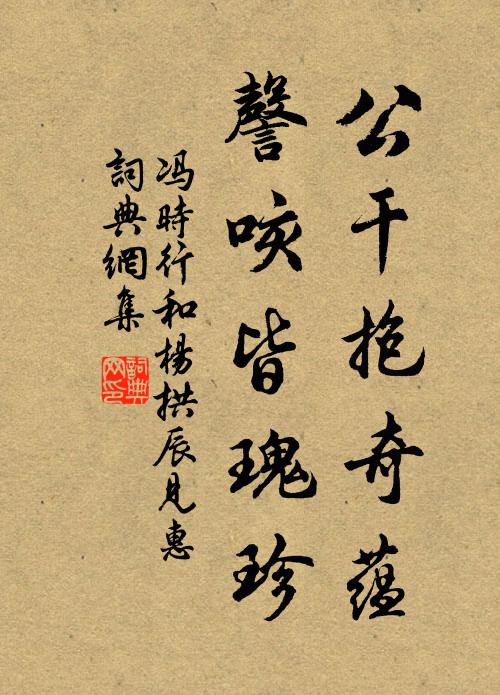 公干抱奇蕴
謦咳皆瑰珍
冯時行和楊拱辰見惠
詞典網集
詞典网印